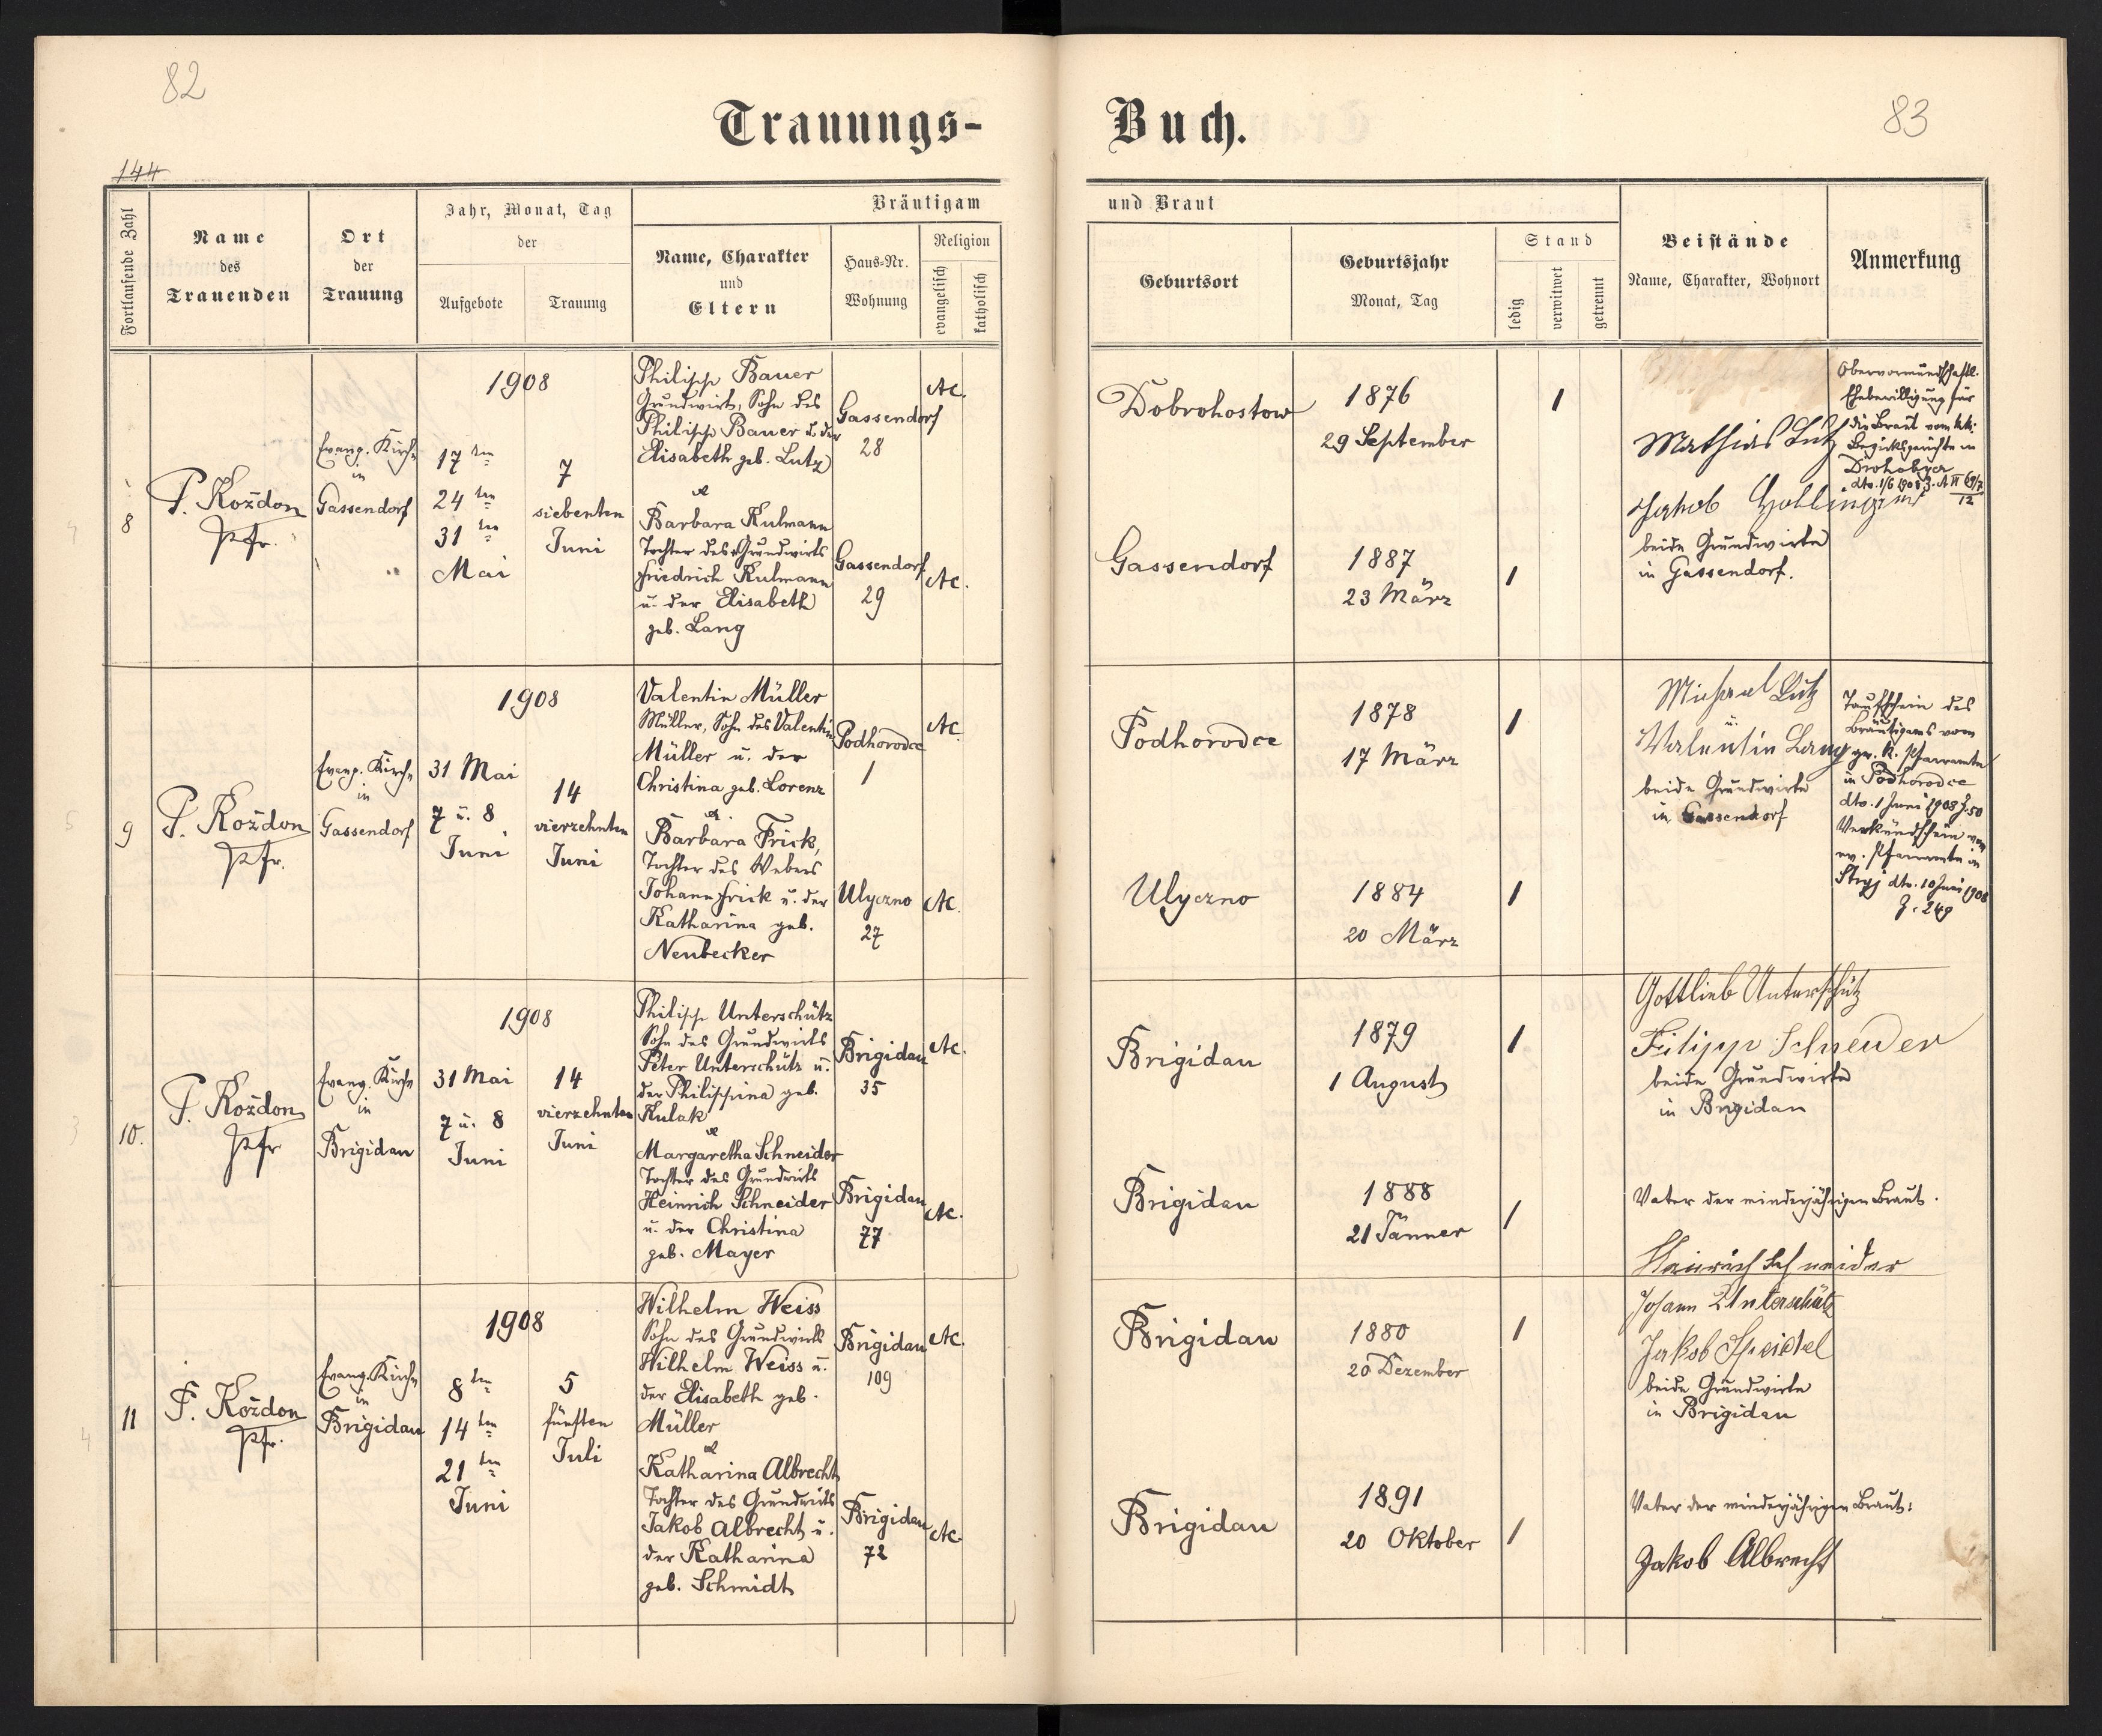 82
83
Trauungs-
Buch.
144
Fortlaufende Zahl
Name
des
Trauenden
Ort
der
Trauung
Jahr, Monat, Tag
der
Aufgebote
Trauung
Bräutigam
Name, Charakter
und
Eltern
Haus-Nr.
Wohnung
Religion
evangelisch
katholisch
und Braut
Geburtsort
Geburtsjahr
Monat, Tag
Stand
ledig
verwitwet
getrennt
Beistände
Name, Charakter, Wohnort
Anmerkung
8
P. Koždon
Pfr.
Evang. Kirche
in
Gassendorf
1908
17ten
24ten
31ten
Mai
7
siebenten
Juni
Philipp Bauer
Grundwirt, Sohn des
Philipp Bauer u. der
Elisabeth geb. Lutz
&
Barbara Kulmann
Tochter des Grundwirts
Friedrich Kulmann
u. der Elisabeth
geb. Lang
Gassendorf
28
AC.
Gassendorf
29
AC.
Dobrohostow
1876
29 September
1
Gassendorf
1887
23 März
1
Mathias Lutz
Jakob Hollinger
beide Grundwirte
in Gassendorf.
Obervormundschaftl.
Ehebewilligung für
die Braut vom k.k.
Bezirksgerichte in
Drohobycz
dto. 1/6 1908
9
P. Koždon
Pfr.
Evang. Kirche
in
Gassendorf
1908
31 Mai
7 u. 8
Juni
14
vierzehnten
Juni
Valentin Müller
Müller, Sohn des Valentin
Müller u. der
Christina geb. Lorenz
&
Barbara Frick,
Tochter des Webers
Johann Frick u. der
Katharina geb.
Neubecker
Podhorodce
1
AC.
Ulyczno
27
AC.
Podhorodce
1878
17 März
1
Ulyczno
1884
20 März
1
Michael Lutz
u.
Valentin Lang
beide Grundwirte
in Gassendorf
Taufschein des
Bräutigams vom
gr. k. Pfarramte
in Podhorodce
dto. 1 Juni 1908 Z. 50
Verkündschein vom
ev. Pfarramte in
Stryj dto. 10 Juni 1908
Z. 249
10.
P. Koždon
Pfr
Evang. Kirche
in
Brigidau
1908
31 Mai
7 u. 8
Juni
14
vierzehnten
Juni
Philipp Unterschütz
Sohn des Grundwirts
Peter Unterschütz u.
der Philippina geb.
Kulak
&
Margaretha Schneider
Tochter des Grundwirts
Heinrich Schneider
u. der Christina
geb. Mayer
Brigidau
35
AC.
Brigidau
77
AC.
Brigidau
1879
1 August
1
Brigidau
1888
21 Jänner
1
Gottlieb Unterschütz
Filipp Schneider
beide Grundwirte
in Brigidau
Vater der minderjährigen Braut.
Heinrich Schneider
11
P. Koždon
Pfr.
Evang. Kirche
in
Brigidau
1908
8ten
14ten
21ten
Juni
5
fünften
Juli
Wilhelm Weiss
Sohn des Grundwirts
Wilhelm Weiss u.
der Elisabeth geb.
Müller
&
Katharina Albrecht
Tochter des Grundwirts
Jakob Albrecht u.
der Katharina
geb. Schmidt
Brigidau
109
AC.
Brigidau
72
AC.
Brigidau
1880
20 Dezember
1
Brigidau
1891
20 Oktober
1
Johann Unterschütz
Jakob Speichel
beide Grundwirte
in Brigidau
Vater der minderjährigen Braut:
Jakob Albrecht